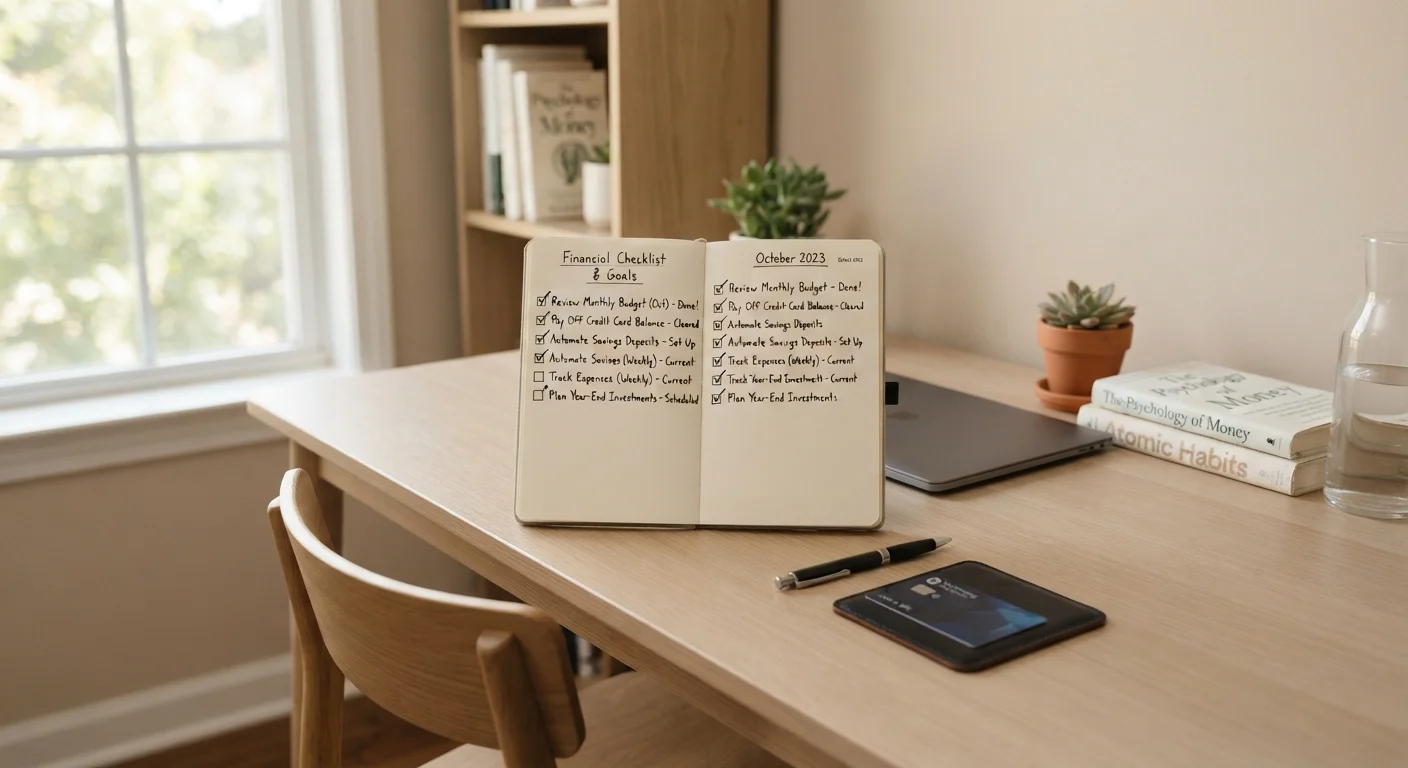 The
Psychology
of
Money
Financial Checklist
& Goals
Review Monthly Budget (Oct) - Done!
Pay Off Credit Card Balance - Cleared
Automate Savings Deposits - Set Up
Automate Savings (Weekly) - Current
Track Expenses (Weekly) - Current
Plan Year-End Investments - Scheduled
October 2023
Review Monthly Budget - Done!
Pay Off Credit Card Balance - Cleared
Automate Savings Deposits
Automate Savings Deposits - Set Up
Track Expenses (Weekly) - Current
Track Year-End - Current
Plan Year-End Investments
The Psychology of
Money
The Psychology of Money
Atomic Habits